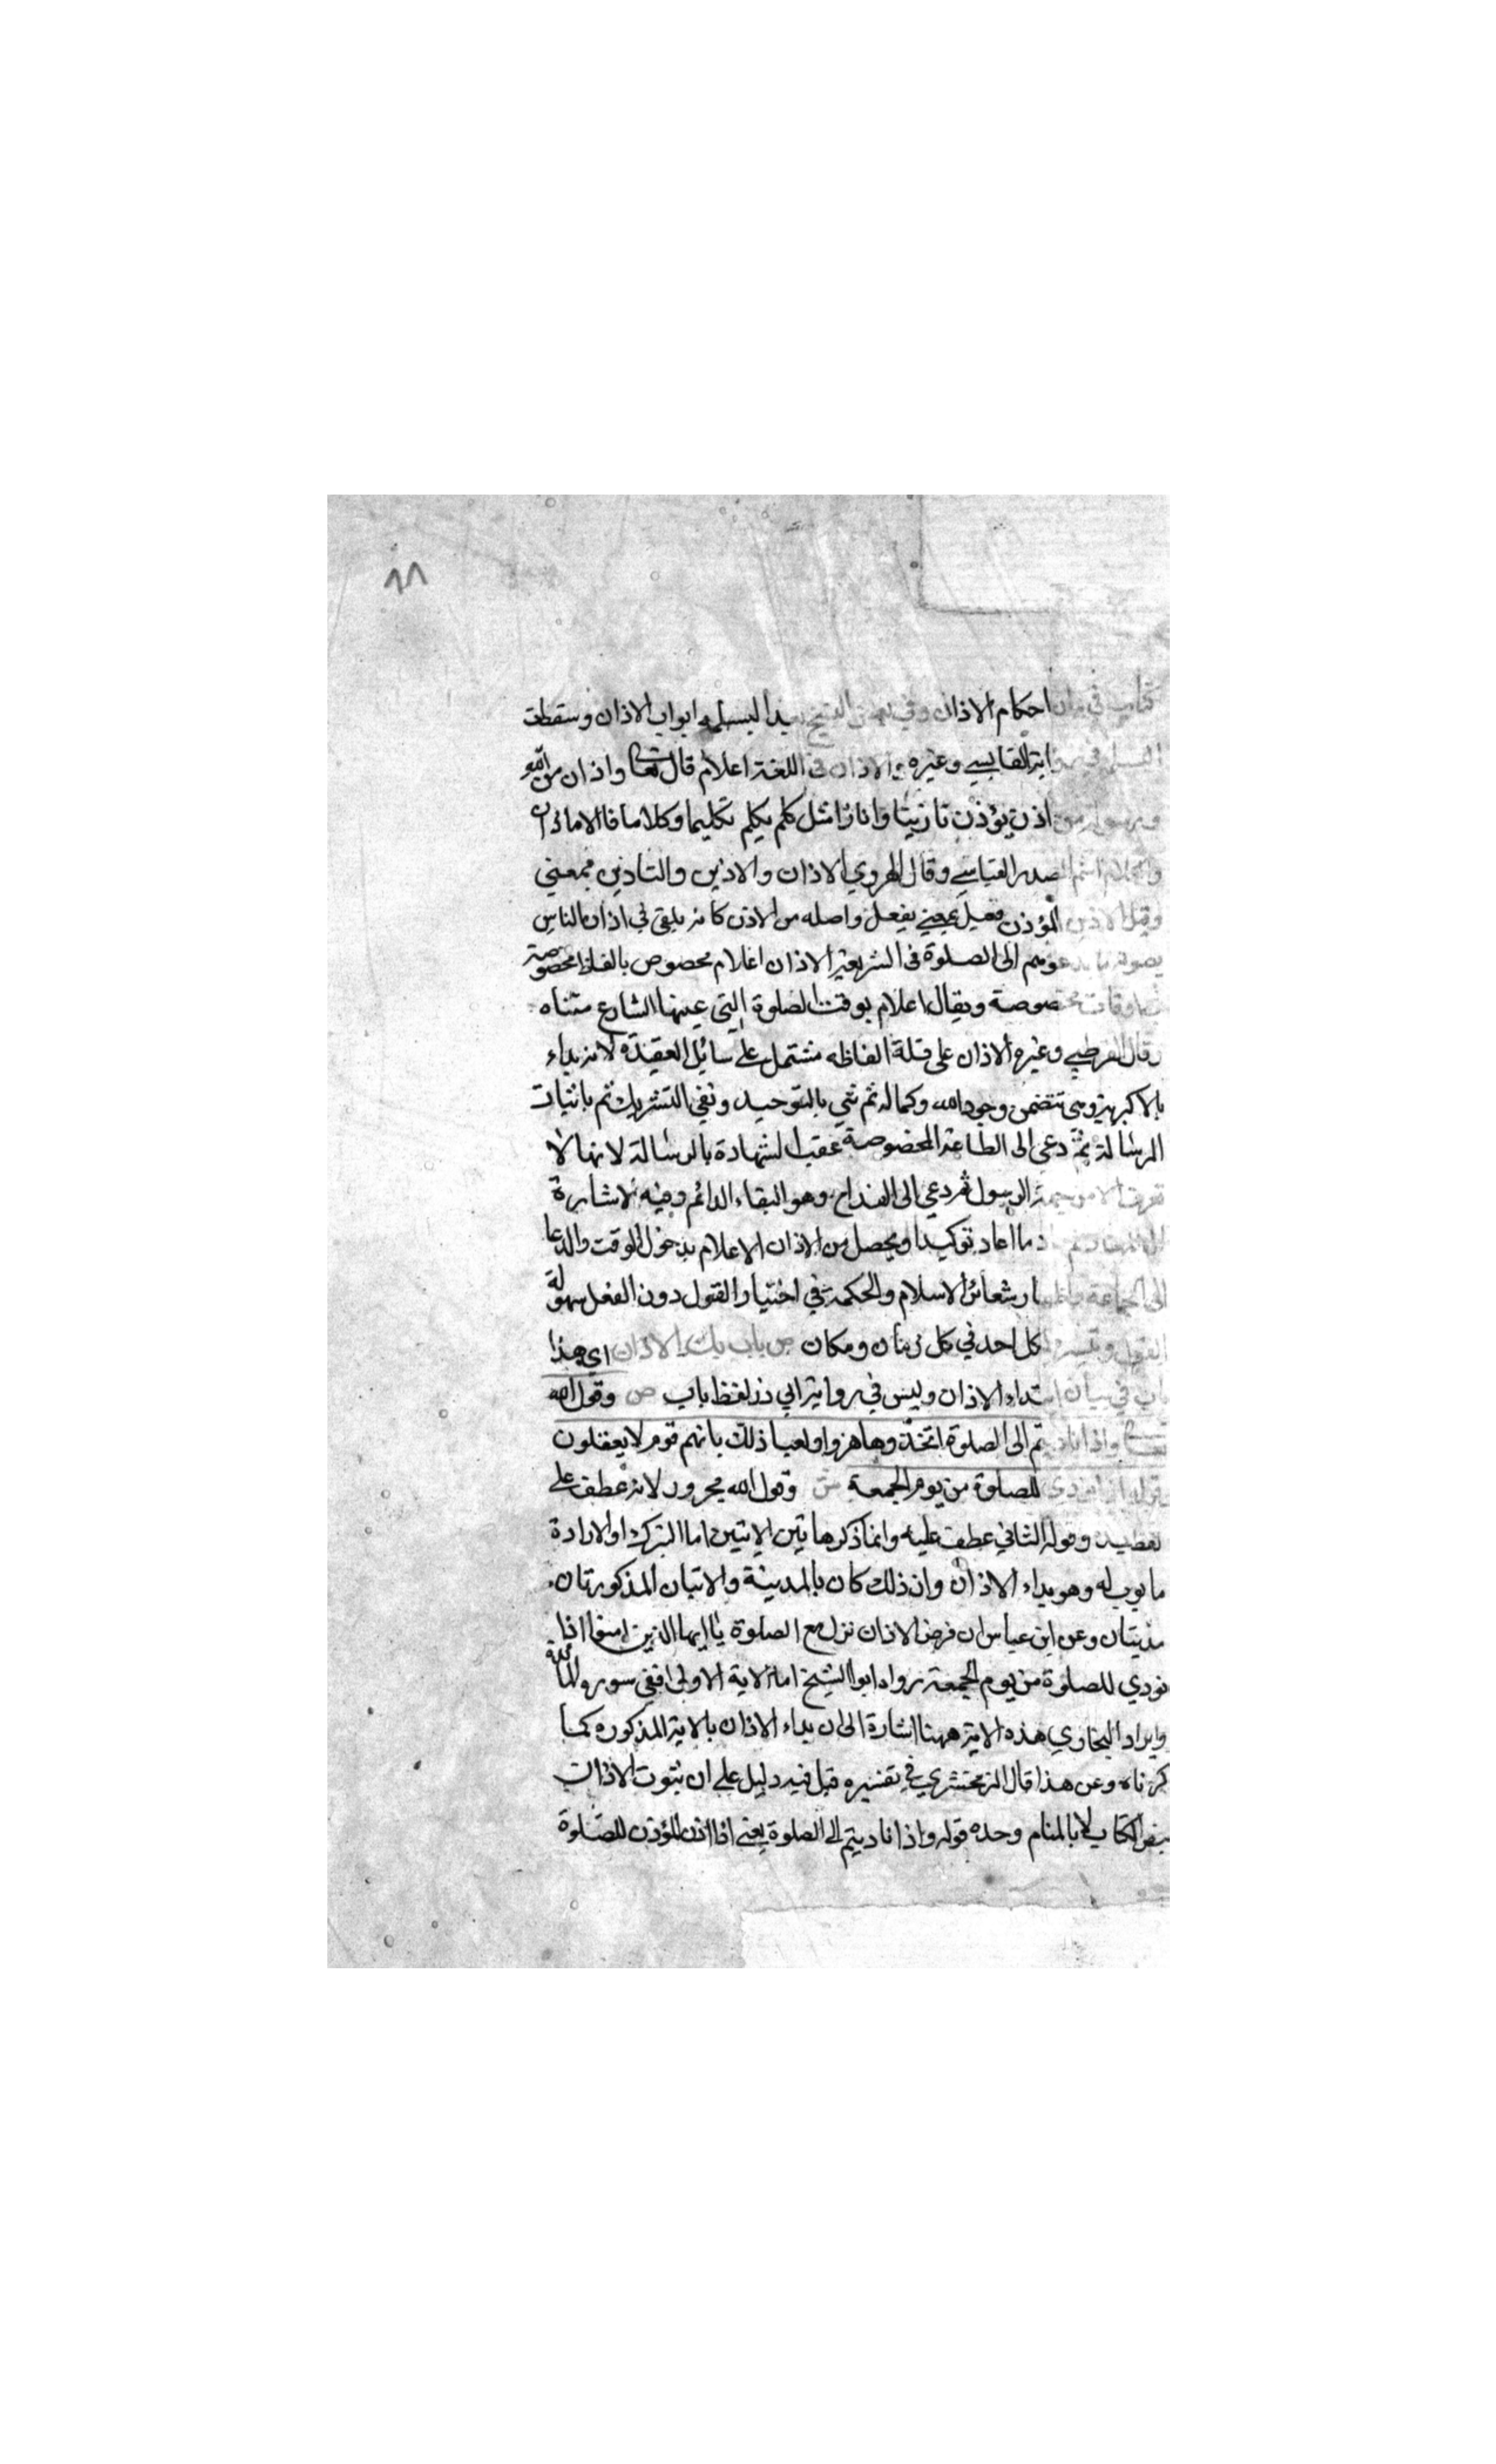 ٩٨
كتاب في بيان احكام الاذان وفي بعض النسخ بعد البسملة ابواب الاذان وسقطت
وابة القابسي وغيره والاذان في اللغة اعلام قال تعالى واذان من الله
ورسوله من اذن يؤذن تاذينا واذانا مثل كلم يكلم تكليما وكلاما فالاذان
والكلام اسم المصدر القياسي وقال الهروي الاذان والاذين والتاذين بمعنى
وقيل الاذين المؤذن فعيل بمعنى يفعل واصله من الاذن كانه يلقى في اذان الناس
بصوته ما يدعوهم الى الصلوة في الشريعة الاذان اعلام مخصوص بالفاظ مخصوصة
اوقات مخصوصة ويقال اعلام بوقت الصلوة التي عينها الشارع مثناه
وقال القرطبي وغيره الاذان على قلة الفاظه مشتمل على سائل العقيدة لانه بداء
بالاكبرية وهي تتضمن وجود الله وكماله ثم ثني بالتوحيد ونفي التشريك ثم باثبات
الرسالة ثم دعى الى الطاعة المخصوصة عقب الشهادة بالرسالة لانها لا
تعرف الا من جهة الرسول ثم دعي الى الفلاح وهو البقاء الدائم وفيه الاشارة
ما اعاد توكيدا ويحصل من الاذان الاعلام بدخول الوقت والدعا
الى الجماعة واظهار شعائر الاسلام والحكمة في اختيار القول دون الفعل سهولة
القول وتيسره لكل احد في كل زمان ومكان ص باب بدء الاذان اي هذا
باب في بيان ابتداء الاذان وليس في رواية ابي ذر لفظ باب ص وقول الله
تعالى واذا ناديتم الى الصلوة اتخذوها هزوا ولعبا ذلك بانهم قوم لا يعقلون
وقوله اذا نودي للصلوة من يوم الجمعة ش وقول الله مجرور لانه عطف على
لفظ بدء وقوله الثاني عطف عليه وانما ذكر هاتين الايتين اما التبرك او لارادة
ما بوب له وهو بداء الاذان وان ذلك كان بالمدينة والايتان المذكورتان
مدنيتان وعن ابن عباس ان فرض الاذان نزل مع الصلوة يا ايها الذين امنوا اذا
نودي للصلوة من يوم الجمعة رواه ابو الشيخ اما الاية الاولى ففي سورة المائدة
وايراد البخاري هذه الاية ههنا اشارة الى ان بداء الاذان بالاية المذكورة كما
ذكرناه وعن هذا قال الزمخشري في تفسيره قيل فيه دليل على ان ثبوت الاذان
بنص الكتاب لا بالمنام وحده قوله واذا ناديتم الى الصلوة يعني اذا اذن المؤذن للصلوة